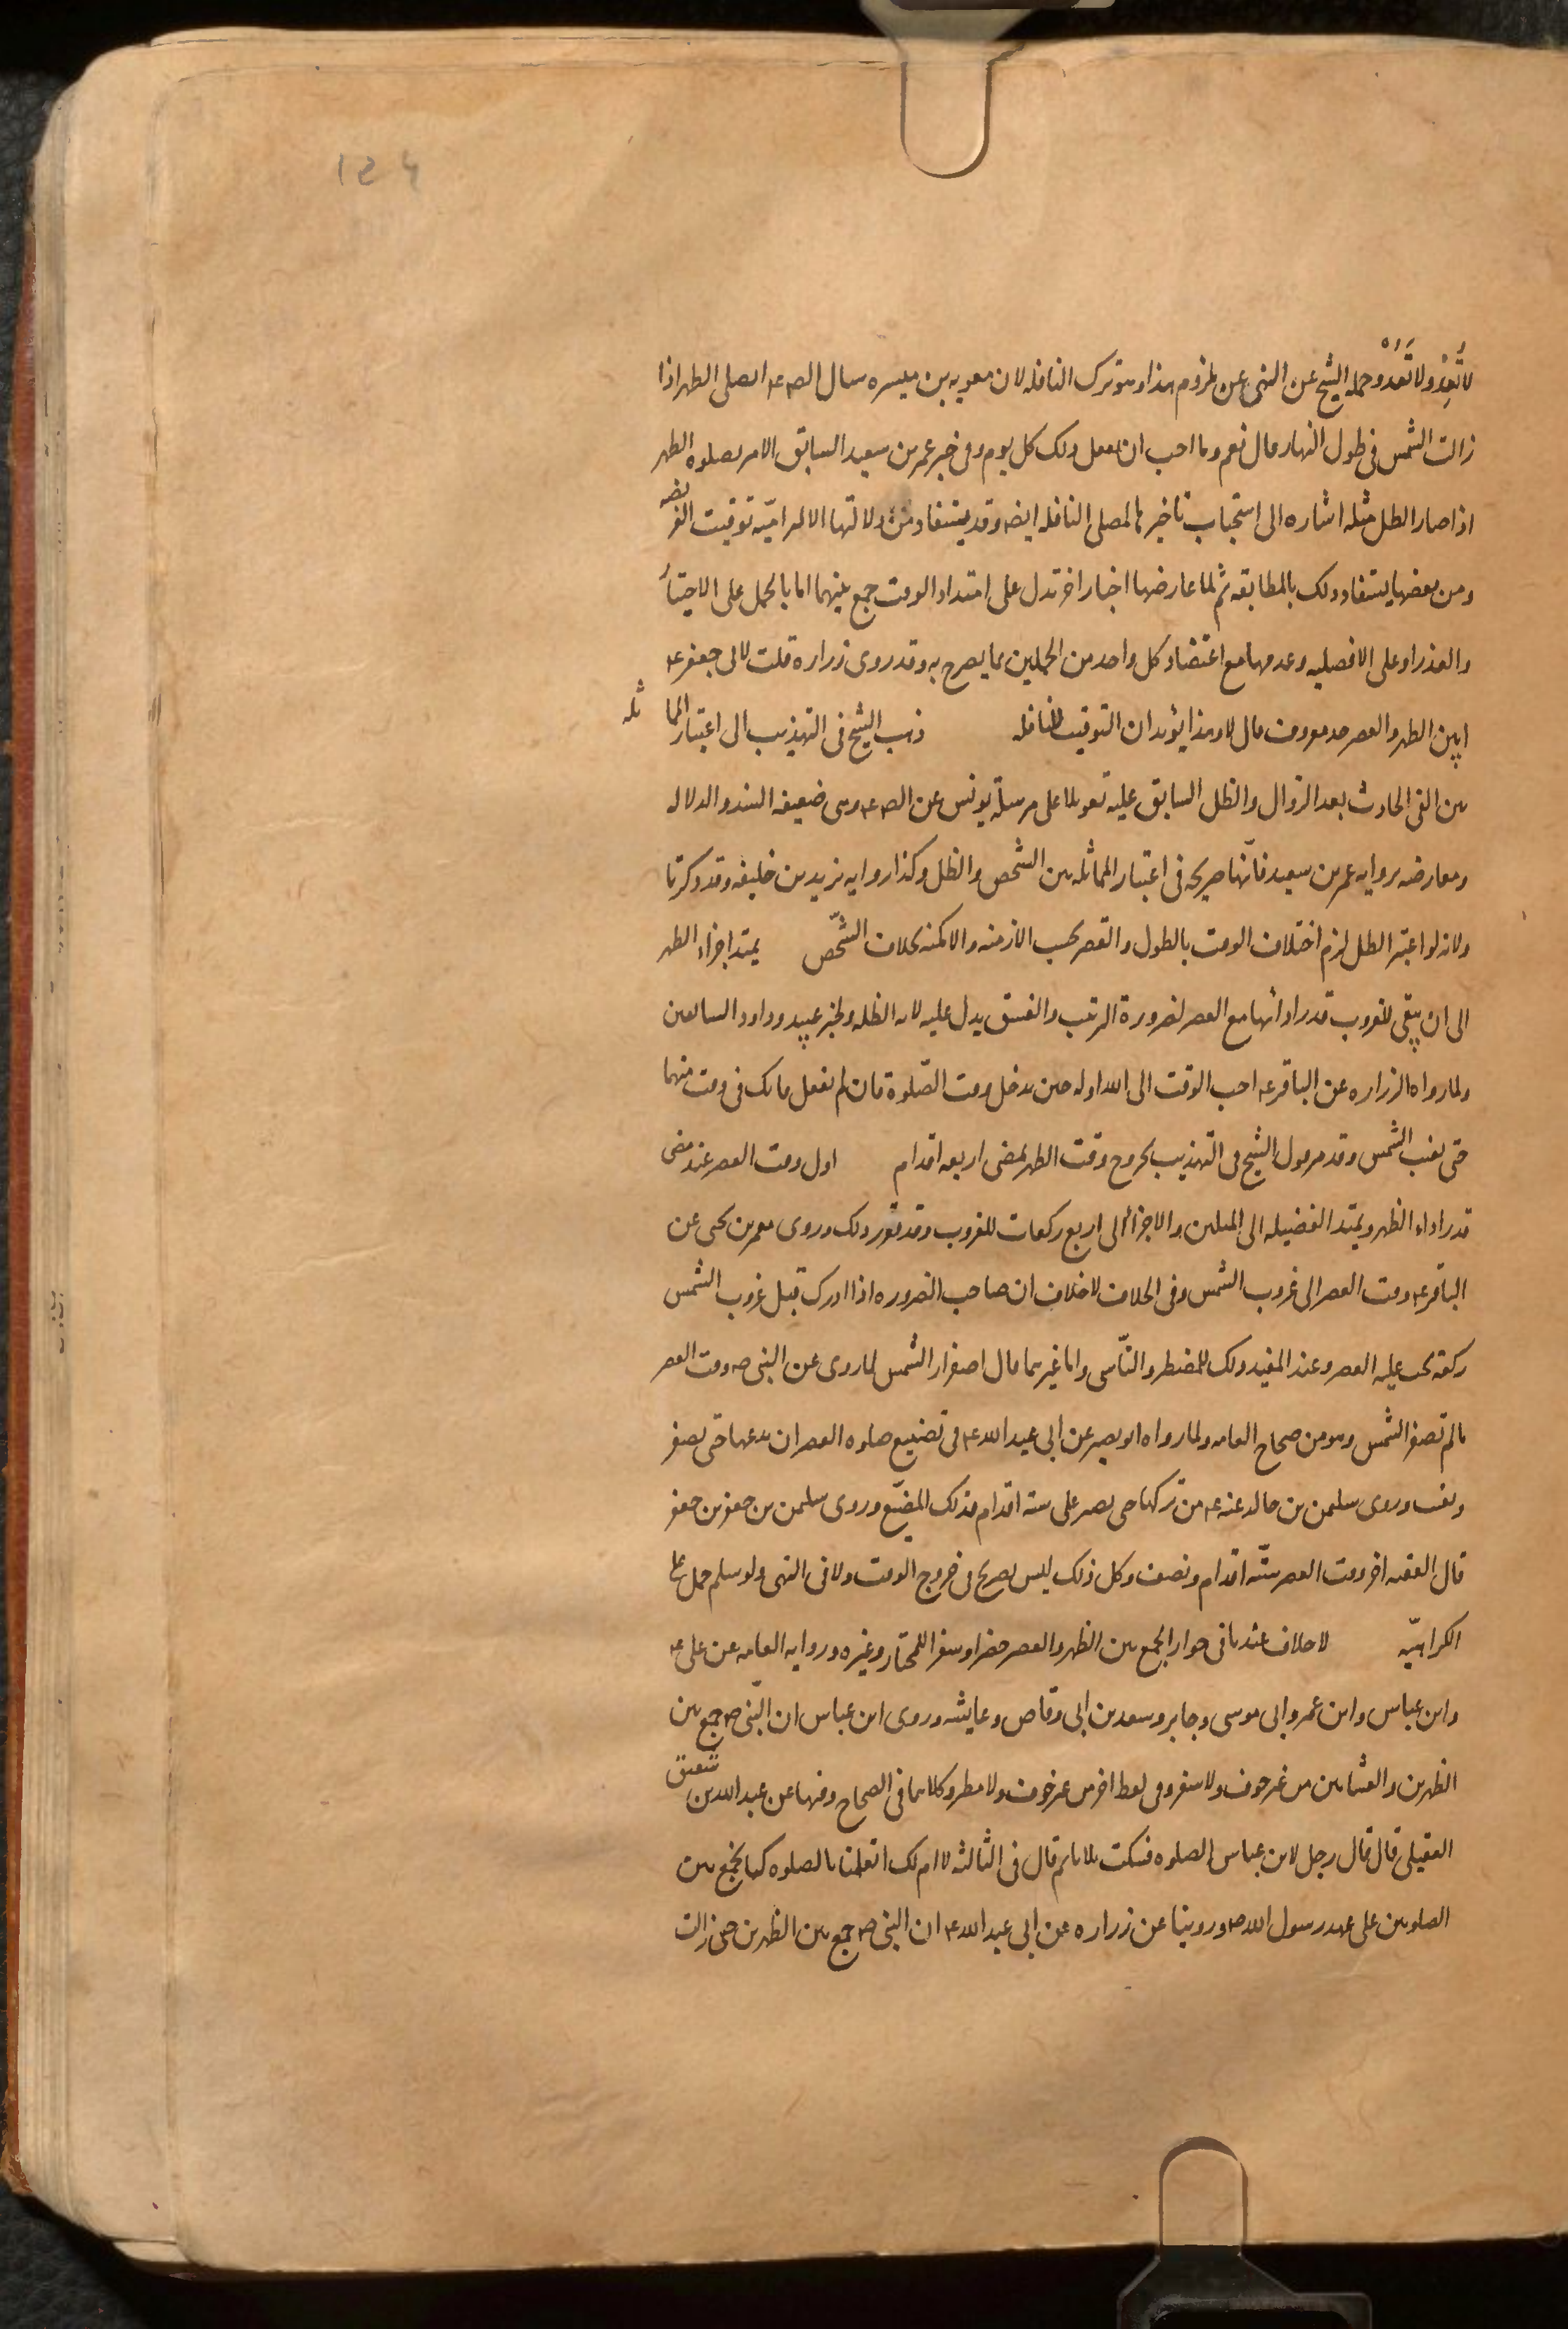 لا تُعِدْ ولا تَعُدْ وحمله الشيخ عن النهى عن لزوم هذا وهو ترك النافله لان معويه بن ميسره سال الص ع ا يصلى الظهر اذا
زالت الشمس فى طول النهار قال نعم وما احب ان يفعل ذلك كل يوم وفى خبر عمر بن سعيد السابق الامر بصلوه الظهر
اذا صار الظل مثله اشاره الى استحباب تاخيرها لمصلى النافله ايضه وقد يستفاد من دلالتها الالتراميّه توقيت الفريضه
ومن بعضها يستفاد ذلك بالمطابقه ثم لما عارضها اخبار اخر تدل على امتداد الوقت جمع بينهما اما بالحمل على الاختيار
والعذر او على الافضليه وعدمها مع اعتضاد كل واحد من الحملين بما يصرح به وقد روى زراره قلت لابى جعفر ع
ا بين الظهر والعصر حد معروف قال لا وهذا يؤيد ان التوقيت للنافله ذهب الشيخ فى التهذيب الى اعتبار المماثله
بين الفئ الحادث بعد الزوال والظل السابق عليه تعويلا على مرسلة يونس عن الص ع وهى ضعيفه السند والدلاله
ومعارضه بروايه عمر بن سعيد فانّها صريحه فى اعتبار المماثله بين الشخص والظل وكذا روايه يزيد بن خليفه وقد ذكرتا
ولانه لو اعتبر الظل لزم اختلاف الوقت بالطول والقصر بحسب الازمنه والامكنه بخلاف الشّخص يمتد اجزاء الظهر
الى ان يبقى للغروب قدر ادائها مع العصر لضرورة الترتيب والغسق يدل عليه لانه الظلمه ولخبر عبيد وداود السالفين
ولما رواه الزراره عن الباقر ع احب الوقت الى الله اوله حين يدخل وقت الصّلوة فان لم تفعل فانك فى وقت منهما
حتى تغيب الشمس وقد مر قول الشيخ فى التهذيب بخروج وقت الظهر بمضى اربعه اقدام اول وقت العصر عند مضى
قدر اداء الظهر ويمتد الفضيله الى المثلين والاجزاء الى اربع ركعات للغروب وقد تقرر ذلك وروى معمر بن يحيى عن
الباقر ع وقت العصر الى غروب الشمس وفى الخلاف لا خلاف ان صاحب الضروره اذا ادرك قبل غروب الشمس
ركعة يجب عليه العصر وعند المفيد ذلك للمضطر والنّاسى واما غيرهما قال اصفرار الشمس لما روى عن النبى ص وقت العصر
ما لم تصفر الشمس وهو من صحاح العامه ولما رواه ابو بصير عن ابى عبد الله ع فى تضييع صلوه العصر ان يدعها حتى تصفر
وتغيب وروى سليمن بن خالد عنه ع من تركها حتى تصير على سته اقدام فذلك المضيّع وروى سليمن بن جعفر بن جعفر
قال الفقيه اخر وقت العصر ستّه اقدام ونصف وكل ذلك ليس بصريح فى خروج الوقت ولا فى النهى ولو سلم حمل على
الكراهيّه لا خلاف عندنا فى جواز الجمع بين الظهر والعصر حضرا وسفرا للمختار وغيره ورواه العامه عن على ع
وابن عباس وابن عمر وابى موسى وجابر وسعد بن ابى وقاص وعايشه وروى ابن عباس ان النّبى ص جمع بين
الظهرين والعشاءين من غير خوف ولا سفر وفى لفظ اخر من غير خوف ولا مطر وكلاهما فى الصحاح وفيها عن عبد الله بن شقيق
العقيلى قال قال رجل لابن عباس الصلوه فسكت ثلاثا ثم قال فى الثالثه لا ام لك اتعلمنا بالصلوه كنا نجمع بين
الصلوتين على عهد رسول الله ص وروينا عن زراره عن ابى عبد الله ع ان النبى ص جمع بين الظهرين حين زالت